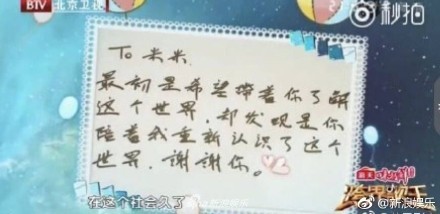 BTV 北京卫视
秒拍
To 米米.
最初是希望带着你了解
这个世界.却发现是你
陪着我重新认识了这个
世界.谢谢你。
在这个社会久了
跨界歌王
@新浪娱乐